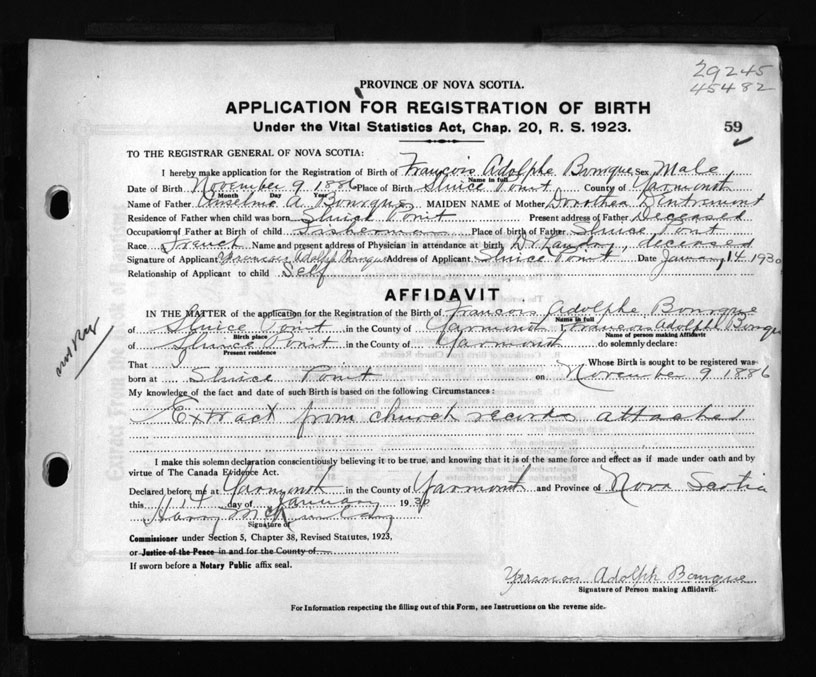 29245
45482
PROVINCE OF NOVA SCOTIA.
APPLICATION FOR REGISTRATION OF BIRTH
Under the Vital Statistics Act, Chap. 20, R. S. 1923.
59
TO THE REGISTRAR GENERAL OF NOVA SCOTIA:
I hereby make application for the Registration of Birth of Francois Adolphe Bourque Sex Male
Name in full
Date of Birth November 9 1886 Place of Birth Sluice Point County of Yarmouth
Month Day Year
Name of Father Anselme A. Bourque MAIDEN NAME of Mother Dorothea Dentremont
Residence of Father when child was born Sluice Point Present address of Father Deceased
Occupation of Father at Birth of child Fisherman Place of birth of Father Sluice Point
Race French Name and present address of Physician in attendance at birth Dr Landry, deceased
Signature of Applicant Francois Adolph Bourque Address of Applicant Sluice Point Date January 14 1930
Relationship of Applicant to child Self
AFFIDAVIT
IN THE MATTER of the application for the Registration of the Birth of Francois Adolphe Bourque
Name in full
of Sluice Point in the County of Yarmouth, Francois Adolphe Bourque
Birth place Name of person making Affidavit
of Sluice Point in the County of Yarmouth do solemnly declare:
Present residence
That I Whose Birth is sought to be registered was
born at Sluice Point on November 9 1886
My knowledge of the fact and date of such Birth is based on the following Circumstances:
Extract from church records attached
I make this solemn declaration conscientiously believing it to be true, and knowing that it is of the same force and effect as if made under oath and by
virtue of The Canada Evidence Act.
Declared before me at Yarmouth in the County of Yarmouth and Province of Nova Scotia
this 14 day of January 1930
Harry
Signature of
Commissioner under Section 5, Chapter 38, Revised Statutes, 1923,
or Justice of the Peace in and for the County of
If sworn before a Notary Public affix seal.
Francois Adolph Bourque
Signature of Person making Affidavit.
For Information respecting the filling out of this Form, see Instructions on the reverse side.